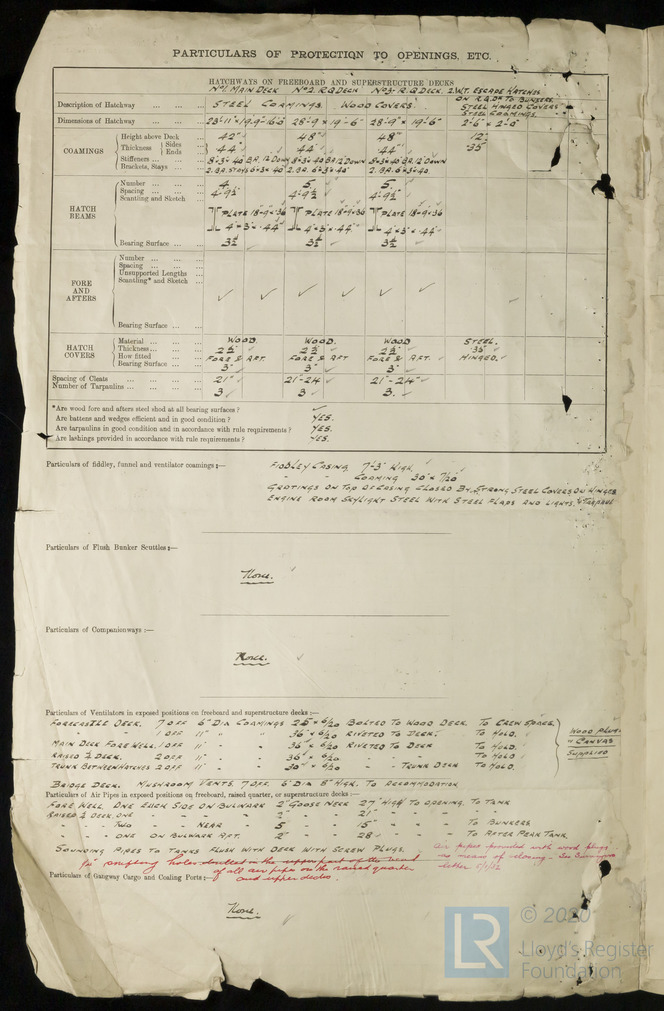 PARTICULARS OF PROTECTION TO OPENINGS, ETC.
HATCHWAYS ON FREEBOARD AND SUPERSTRUCTURE DECKS
No 1. MAIN DECK No 2. R.Q DECK No 3. R.Q DECK. 2 W.T. ESCAPE HATCHES
ON R.Q.DK TO BUNKERS.
Description of Hatchway ... ... ... STEEL COAMINGS. WOOD COVERS. STEEL HINGED COVERS
STEEL COAMINGS.
Dimensions of Hatchway ... ... ... 28'-9 × 19'-6" 28'-9" × 19'-6" 2'-6" × 2'-0"
COAMINGS
Height above Deck ... 42" 48" 48" 12"
Thickness Sides .44" .44" .44" .35"
Ends
Stiffeners ... ... ... 8"×3"×.40 B.A. 12" DOWN 8"×3"×.40 B.A. 12" DOWN 8"×3"×.40 B.A. 12" DOWN
Brackets, Stays ... ... 2. B.A. STAYS 6"×3"×.40" 2. B.A. 6"×3"×.40" 2. B.A. 6"×3"×.40.
HATCH BEAMS
Number ... ... ... 4. 5. 5.
Spacing ... ... ... 4'-9½ 4'-9½ 4'-9½
Scantling and Sketch
PLATE 18"×9"×.36 PLATE 18"×9"×.36 PLATE 18"×9"×.36
4"×3"×.44" 4"×3"×.44" 4"×3"×.44"
Bearing Surface ... ... 3½" 3½" 3½"
FORE AND AFTERS
Number ... ... ...
Spacing ... ... ...
Unsupported Lengths ...
Scantling* and Sketch ...
✓ ✓ ✓ ✓ ✓ ✓
Bearing Surface ... ...
HATCH COVERS
Material ... ... ... WOOD. WOOD. WOOD STEEL.
Thickness ... ... ... 2½" 2½" 2½" .35"
How fitted ... ... FORE & AFT. FORE & AFT FORE & AFT. HINGED.
Bearing Surface ... ... 3" 3" 3"
Spacing of Cleats ... ... ... ... 21" 21"-24 21"-24"
Number of Tarpaulins ... ... ... ... 3 3 3.
*Are wood fore and afters steel shod at all bearing surfaces? ✓
Are battens and wedges efficient and in good condition? YES.
Are tarpaulins in good condition and in accordance with rule requirements? YES.
Are lashings provided in accordance with rule requirements? YES.
Particulars of fiddley, funnel and ventilator coamings:— FIDDLEY CASING 7'-3" HIGH.
" COAMING 30" × 7/20
GRATINGS ON TOP OF CASING CLOSED BY STRONG STEEL COVERS ON HINGES
ENGINE ROOM SKYLIGHT STEEL WITH STEEL FLAPS AND LIGHTS.
Particulars of Flush Bunker Scuttles:—
None.
Particulars of Companionways:—
None.
Particulars of Ventilators in exposed positions on freeboard and superstructure decks:—
FORECASTLE DECK. 7 OFF 6" DIA COAMINGS × 6/20 BOLTED TO WOOD DECK TO CREW SPACE.
" 1 OFF 11" " " 36" × 6/20 RIVETED TO DECK. TO HOLD.
MAIN DECK FORE WELL. 1 OFF 11" " " 36" × 6/20 RIVETED TO DECK TO HOLD.
RAISED ¼ DECK. 2 OFF 11" " " 36" × 6/20 TO HOLD.
TRUNK BETWEEN HATCHES 2 OFF 11" " " 30" × 6/20 " TRUNK DECK TO HOLD.
WOOD PLUGS
& CANVAS
SUPPLIED
BRIDGE DECK. MUSHROOM VENTS. 7 OFF. 6" DIA 8" HIGH. TO ACCOMMODATION
Particulars of Air Pipes in exposed positions on freeboard, raised quarter, or superstructure decks:—
FORE WELL ONE EACH SIDE ON BULWARK 2" GOOSE NECK 27" HIGH TO OPENING. TO TANK
RAISED ¼ DECK. ONE " " 2" " 21" "
" TWO " NEAR " 5" " 15" " TO BUNKERS
" ONE ON BULWARK AFT. 2" " 28 " TO AFTER PEAK TANK.
SOUNDING PIPES TO TANKS FLUSH WITH DECK WITH SCREW PLUGS.
Air pipes provided with wood plugs
as means of closing. See
letter
holes drilled in the upper part of the bend
of all air pipes on the raised quarter
and upper decks.
Particulars of Gangway Cargo and Coaling Ports:—
None.
LR
© 2020
Lloyd's Register
Foundation